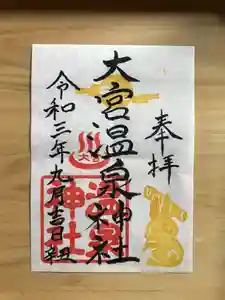 奉拝
大宮温泉神社
令和三年九月吉日